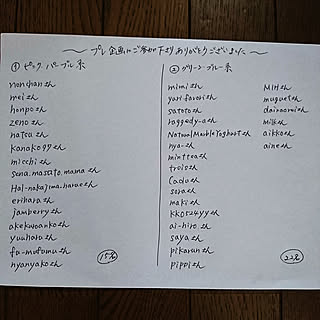 ～プレ企画にご参加下さりありがとうございました～
① ピンク パープル系
nonchanさん
meiさん
honpoさん
zenoさん
natsuさん
kanako99さん
micchiさん
sena.masato.mamaさん
Hal-nakajima.haraeさん
eriharaさん
jamberryさん
akekwoankoさん
yuuharuさん
fu-mufumuさん
nyanyakoさん
15名
② グリーン・ブルー系
mimiさん
yuri favoriさん
satotoさん
raggedy-aさん
NaturalMarbleYoghurtさん
nya-さん
mintteaさん
troisさん
Caduさん
soraさん
makiさん
KKO524yyさん
ai-hiroさん
sayaさん
pikarunさん
pippiさん
MIHさん
muguetさん
dainaoreiさん
Milkさん
aikkoさん
aineさん
22名